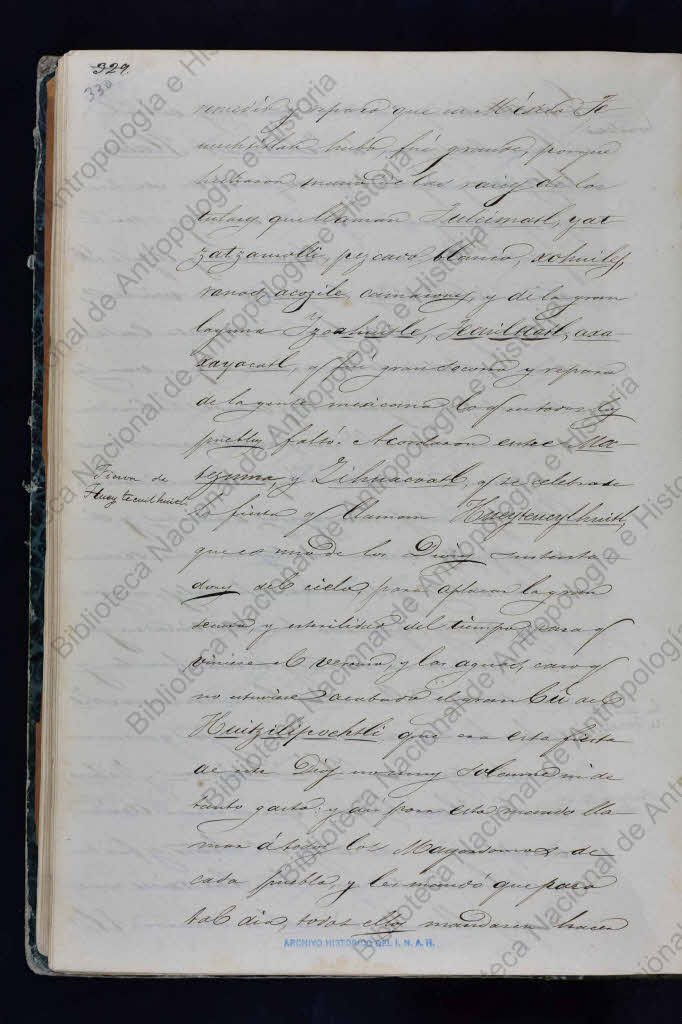 329.
330
remedio y reparo que en México Te
nuchtitlan hubo, fué grande, porque
hicieron mana de las raizes de los
tulares, que llaman Tulcimatl, y at
zatzamolli, pezcado blanco, xohuiles,
ranas, acozile, camarones, y de la gran
laguna Yzcahuitle, Tecuitlatl, axa-
xayacatl, q fué gran socorro y reparo
de la gente mexicana lo q en todos los
pueblos faltó. Acordaron entre Mo-
tezuma y Zihuacoatl, q se celebrase
Fiesta de
Huey tecuilhuitl.
la fiesta q llaman Hueytecuylhuitl,
que es uno de los Dioses sustenta
dores del cielo, para aplacar la gran
secura, y esterilidad del tiempo, para q
viniese el verano, y las aguas, caso q
no estuviese acabado el gran Cú del
Huitzilipochtli, que era esta fiesta
de este Dios no muy solemne, ni de
tanto gasto: y así para esto mandó lla-
mar á todos los Mayordomos de
cada pueblo, y les mandó que para
tal dia, todos ellos mandasen hacer
ARCHIVO HISTORICO DEL I. N. A. H.
Biblioteca Nacional de Antropología e Historia